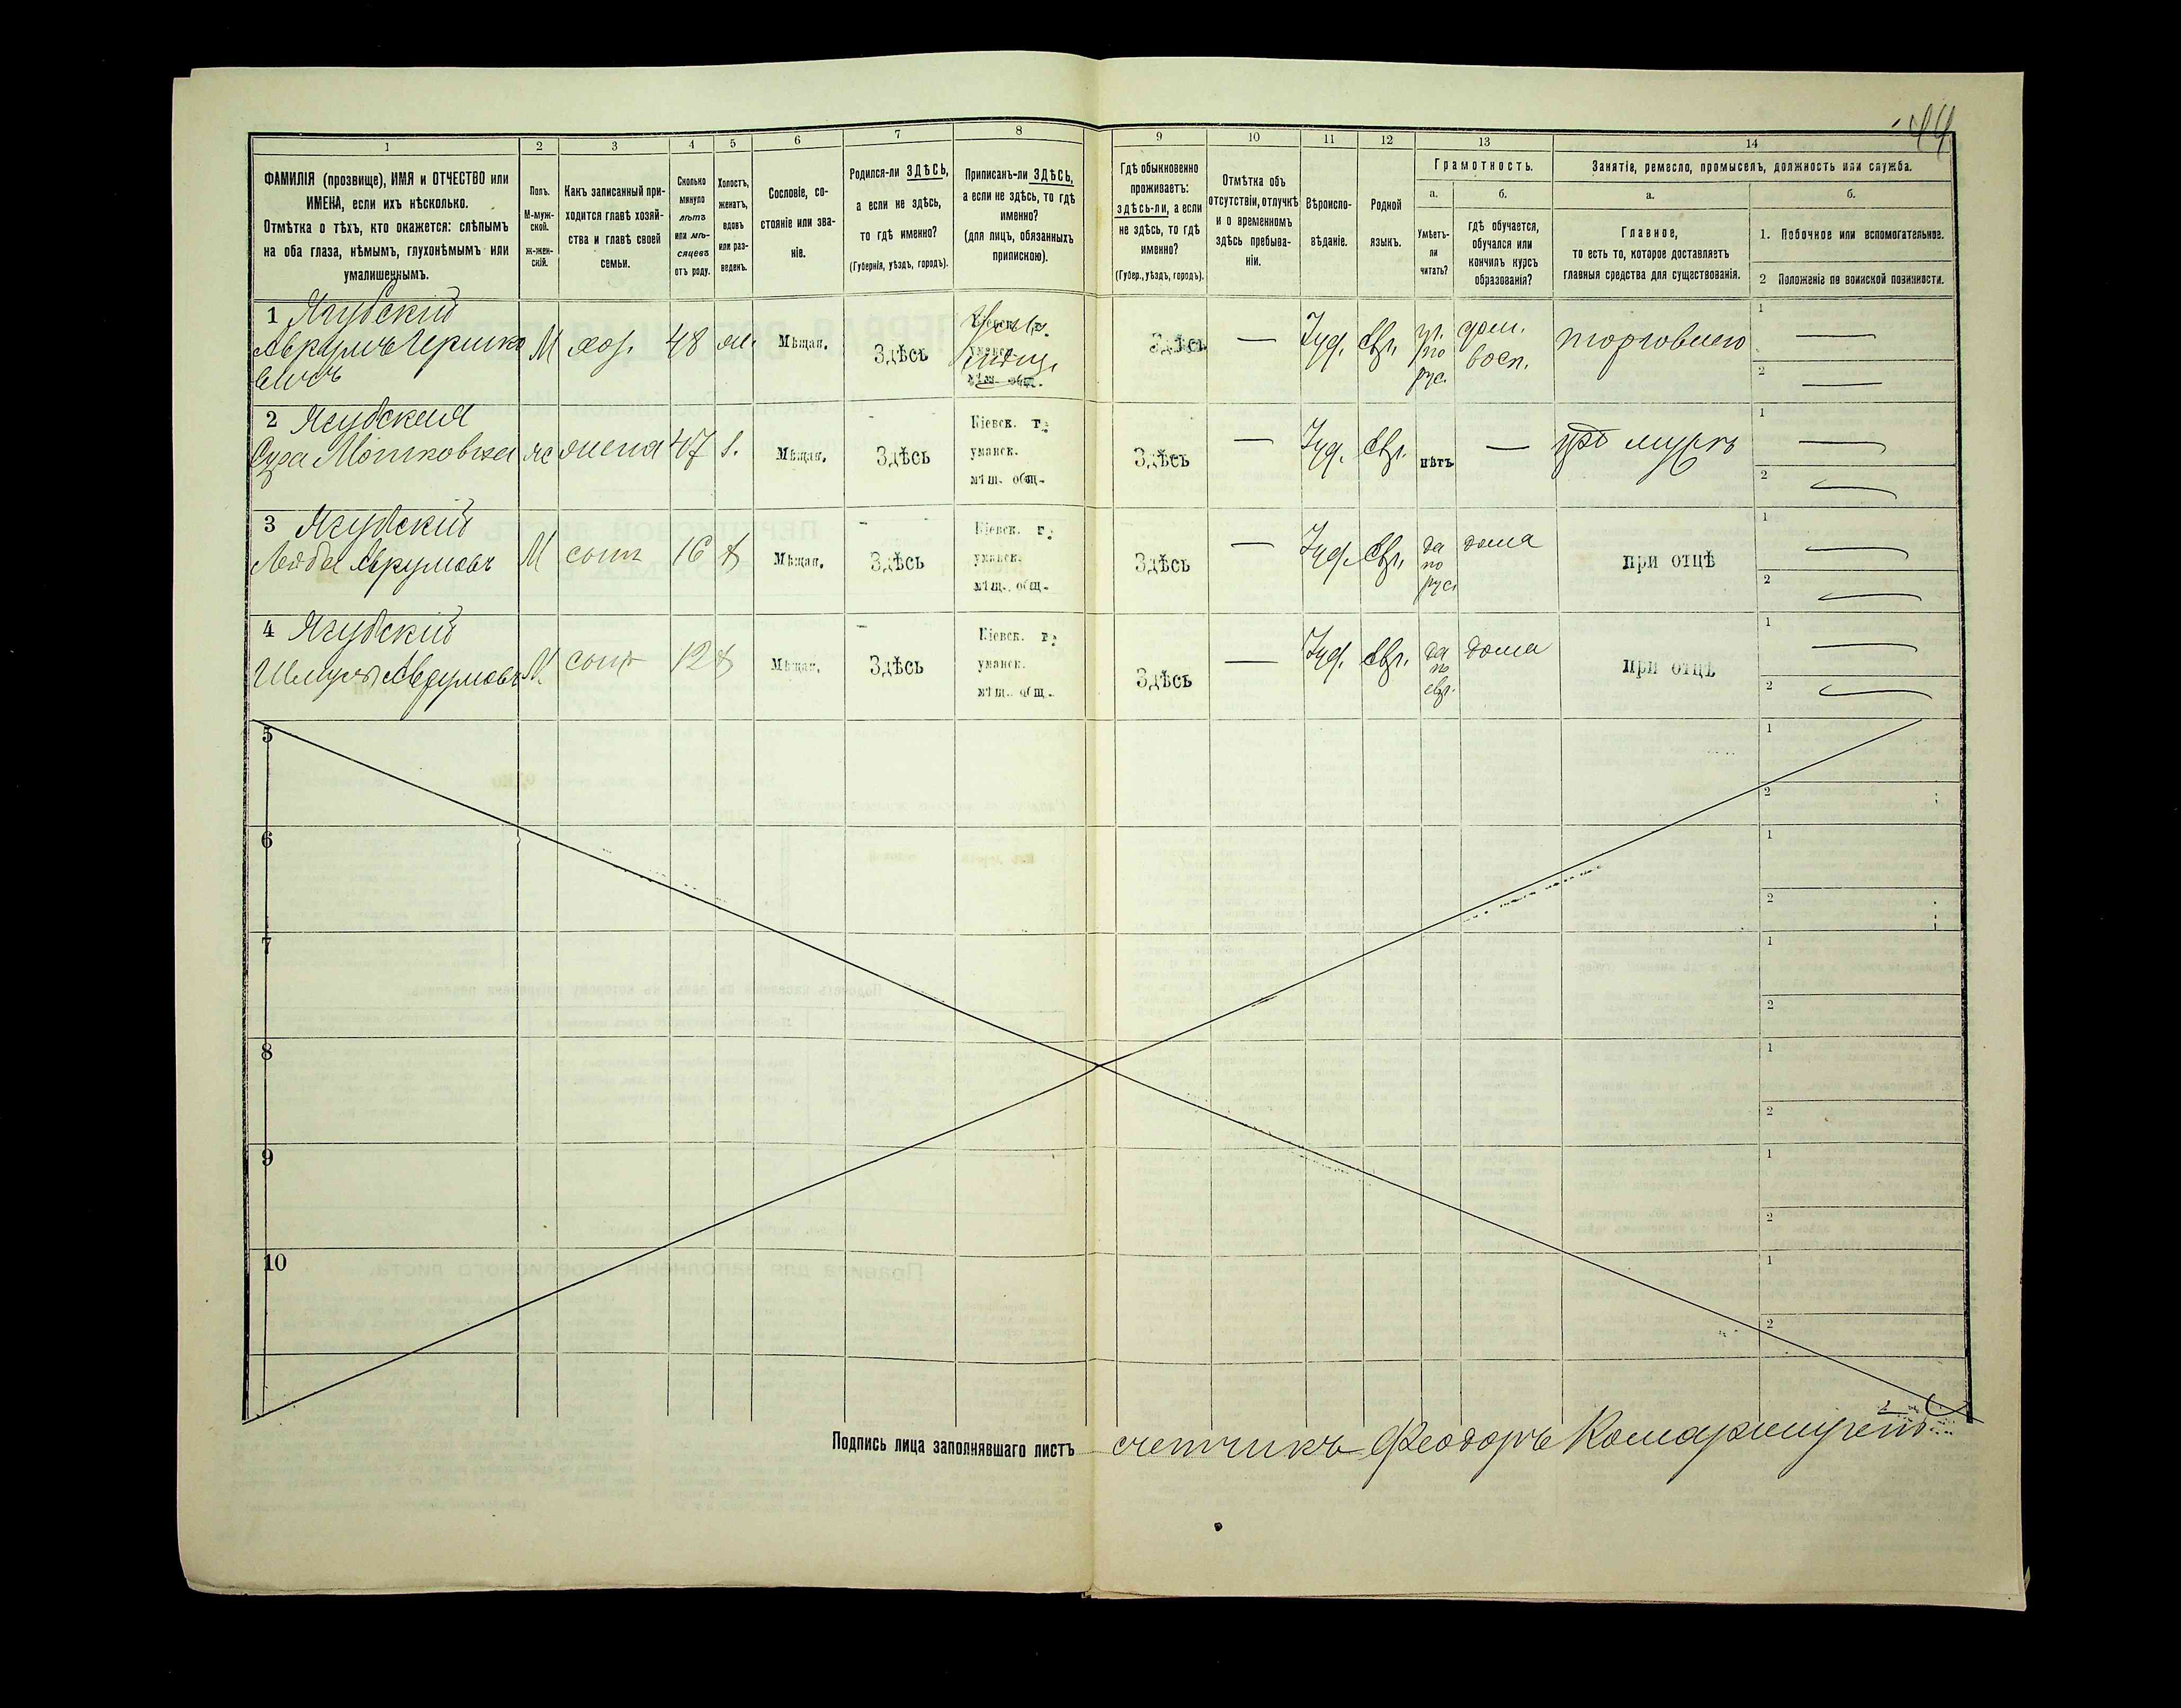 44
1 2 3 4 5 6 7 8 9 10 11 12 13 14
ФАМИЛІЯ (прозвище), ИМЯ и ОТЧЕСТВО или
ИМЕНА, если ихъ нѣсколько.
Отмѣтка о тѣхъ, кто окажется: слѣпымъ
на оба глаза, нѣмымъ, глухонѣмымъ или
умалишеннымъ.
Полъ.
М-муж-
ской.
ж-жен-
скій.
Какъ записанный при-
ходится главѣ хозяй-
ства и главѣ своей
семьи.
Сколько
минуло
лѣтъ
или мѣ-
сяцевъ
отъ роду.
Холостъ,
женатъ,
вдовъ
или раз-
веденъ.
Сословіе, со-
стояніе или зва-
ніе.
Родился-ли ЗДѢСЬ,
а если не здѣсь,
то гдѣ именно?
(Губернія, уѣздъ, городъ).
Приписанъ-ли ЗДѢСЬ,
а если не здѣсь, то гдѣ
именно?
(для лицъ, обязанныхъ
припискою).
Гдѣ обыкновенно
проживаетъ:
здѣсь-ли, а если
не здѣсь, то гдѣ
именно?
(Губер., уѣздъ, городъ).
Отмѣтка объ
отсутствіи, отлучкѣ
и о временномъ
здѣсь пребыва-
ніи.
Вѣроиспо-
вѣданіе.
Родной
языкъ.
Грамотность.
а.
Умѣетъ-
ли
читать?
б.
гдѣ обучается,
обучался или
кончилъ курсъ
образованія?
Занятіе, ремесло, промыселъ, должность или служба.
а.
Главное,
то есть то, которое доставляетъ
главныя средства для существованія.
б.
1. Побочное или вспомогательное.
2 Положеніе по воинской повинности.
1 Ягубскій
Авкумъ Гершко
вичъ
М хоз. 48 ж. Мѣщан. Здѣсь
Кіевск. г.
уманск.
мѣщ. общ.
Здѣсь — Іуд. Евр.
по
рус.
дом.
восп.
торговлею
1 —
2 —
2 Ягубская
Сура Мошковна ж жена 47 з. Мѣщан. Здѣсь
Кіевск. г.
уманск.
мѣщ. общ.
Здѣсь — Іуд. Евр. нѣтъ — при мужѣ
1 —
2 —
3 Ягубскій
Лейба Авкумовъ М сынъ 16 х Мѣщан. Здѣсь
Кіевск. г.
уманск.
мѣщ. общ.
Здѣсь — Іуд. Евр.
да
по
рус.
дома
при отцѣ
1 —
2 —
4 Ягубскій
Шмуль Авкумовъ М. сынъ 12 х Мѣщан. Здѣсь
Кіевск. г.
уманск.
мѣщ. общ.
Здѣсь — Іуд. Евр.
да
по
евр.
дома
при отцѣ
1 —
2 —
5
1
2
6
1
2
7
1
2
8
1
2
9
1
2
10
1
2
Подпись лица заполнявшаго листъ счетчикъ Феодоръ